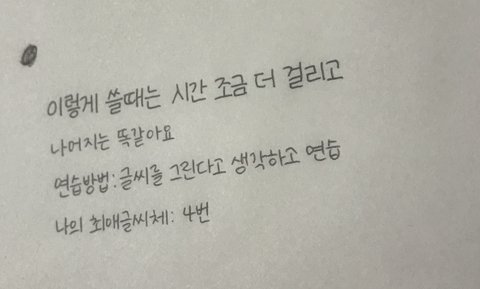 이렇게 쓸때는 시간 조금 더 걸리고
나어지는 똑같아요
연습방법: 글씨를 그린다고 생각하고 연습
나의 최애글씨체: 4번